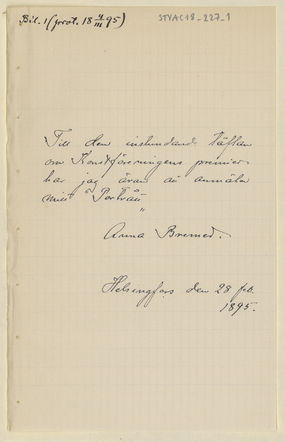 Bil. 1 (prot. 18 4/III 95)
STVAC18_227_1
Till den instundande täflan
om Konstföreningens premier
har jag äran att anmäla
mitt "Porträtt"
Anna Bremer.
Helsingfors den 28 feb.
1895.